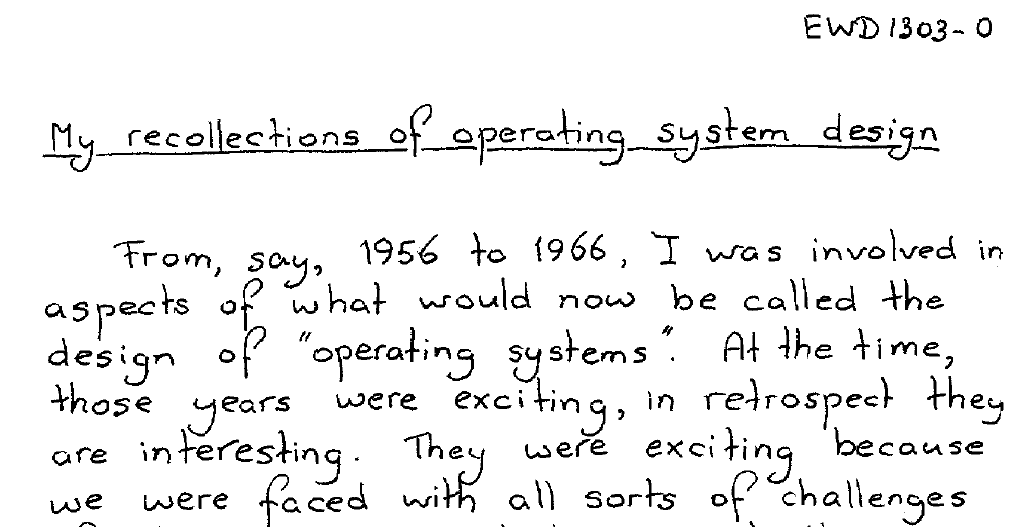 EWD1303-0
My recollections of operating system design
From, say, 1956 to 1966, I was involved in
aspects of what would now be called the
design of "operating systems". At the time,
those years were exciting, in retrospect they
are interesting. They were exciting because
we were faced with all sorts of challenges